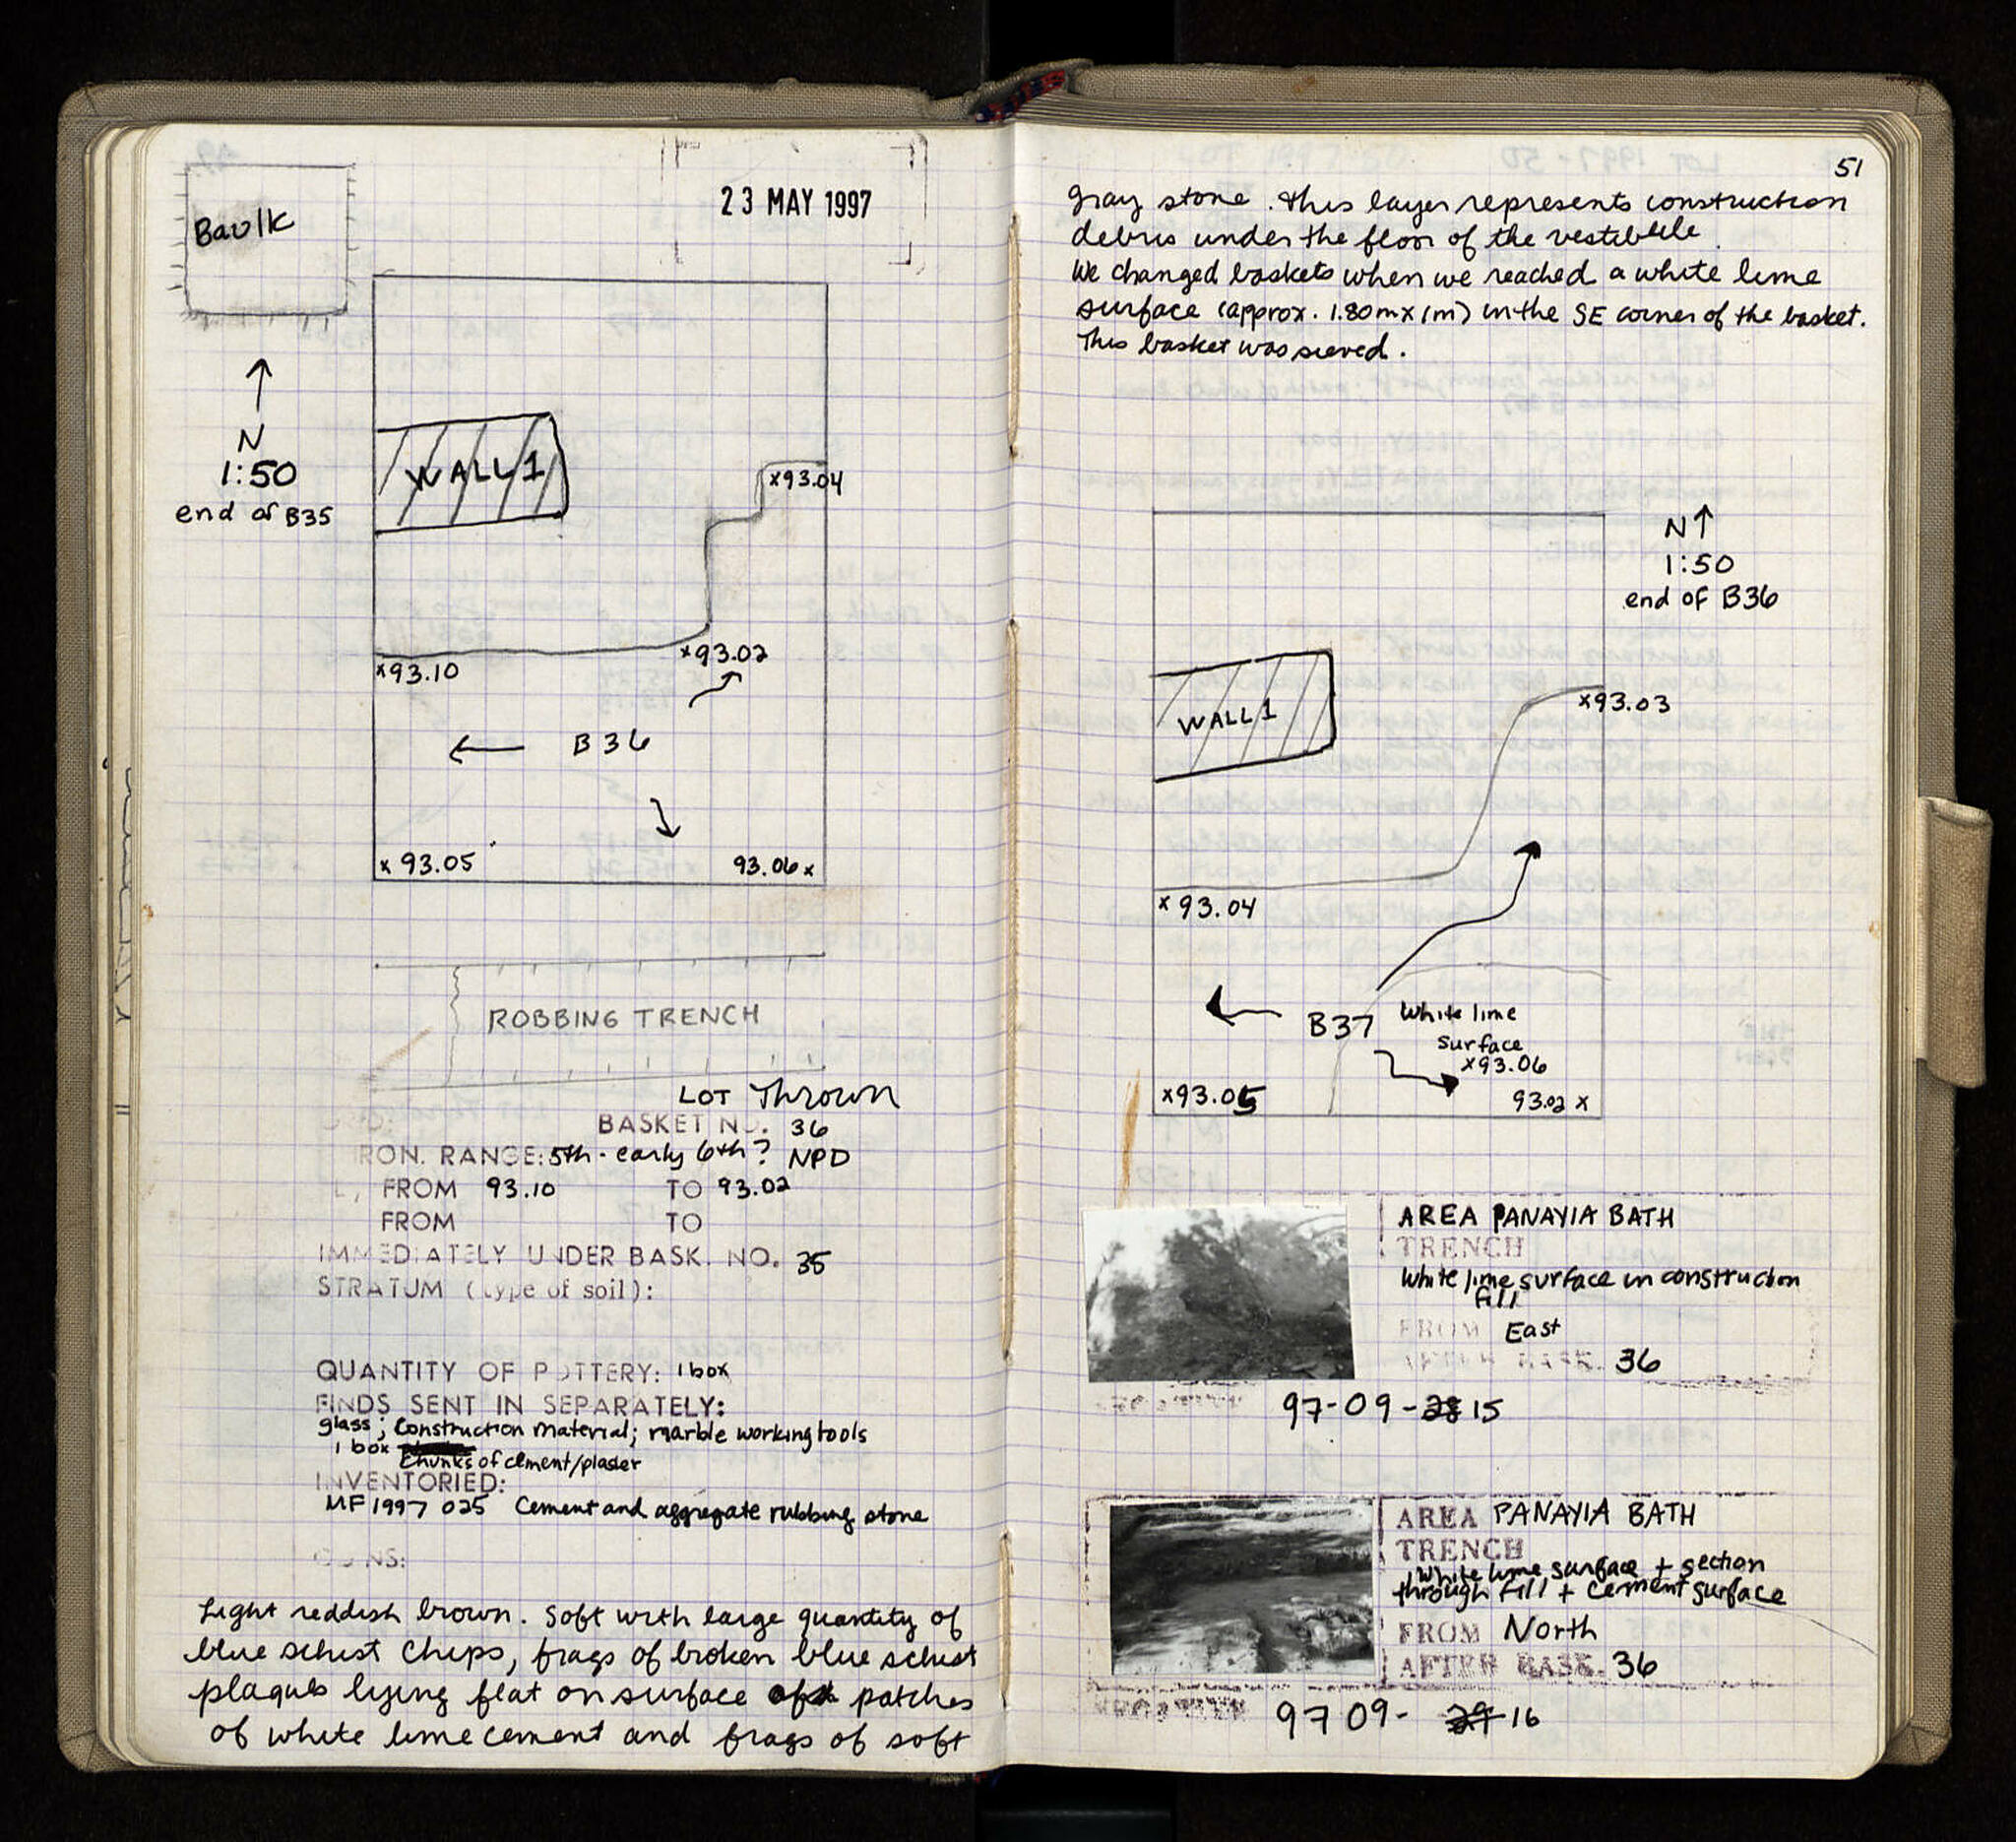 Baulk
23 MAY 1997
N
1:50
end of B35
WALL 1
x93.04
x93.02
x93.10
B 36
x 93.05
93.06 x
ROBBING TRENCH
LOT Thrown
BASKET NO. 36
RON. RANGE: 5th - early 6th? NPD
FROM 93.10 TO 93.02
FROM TO
IMMEDIATELY UNDER BASK. NO. 35
STRATUM (type of soil):
QUANTITY OF POTTERY: 1 box
FINDS SENT IN SEPARATELY:
glass; Construction material; marble working tools
1 box
Chunks of cement/plaster
INVENTORIED:
MF 1997 025 Cement and aggregate rubbing stone
COINS:
Light reddish brown. Soft with large quantity of
blue schist chips, frags of broken blue schist
plaques lying flat on surface of patches
of white lime cement and frags of soft
51
gray stone. This layer represents construction
debris under the floor of the vestibule.
We changed baskets when we reached a white lime
surface (approx. 1.80m x 1m) in the SE corner of the basket.
This basket was sieved.
N
1:50
end of B36
WALL 1
x93.03
x 93.04
B37
White lime
surface
x93.06
x93.05
93.02 x
AREA PANAYIA BATH
TRENCH
White lime surface in construction
fill
FROM East
AFTER BASK. 36
97-09-28 15
AREA PANAYIA BATH
TRENCH
White lime surface + section
through fill + cement surface
FROM North
AFTER BASK. 36
NEGATIVE
97 09- 29 16